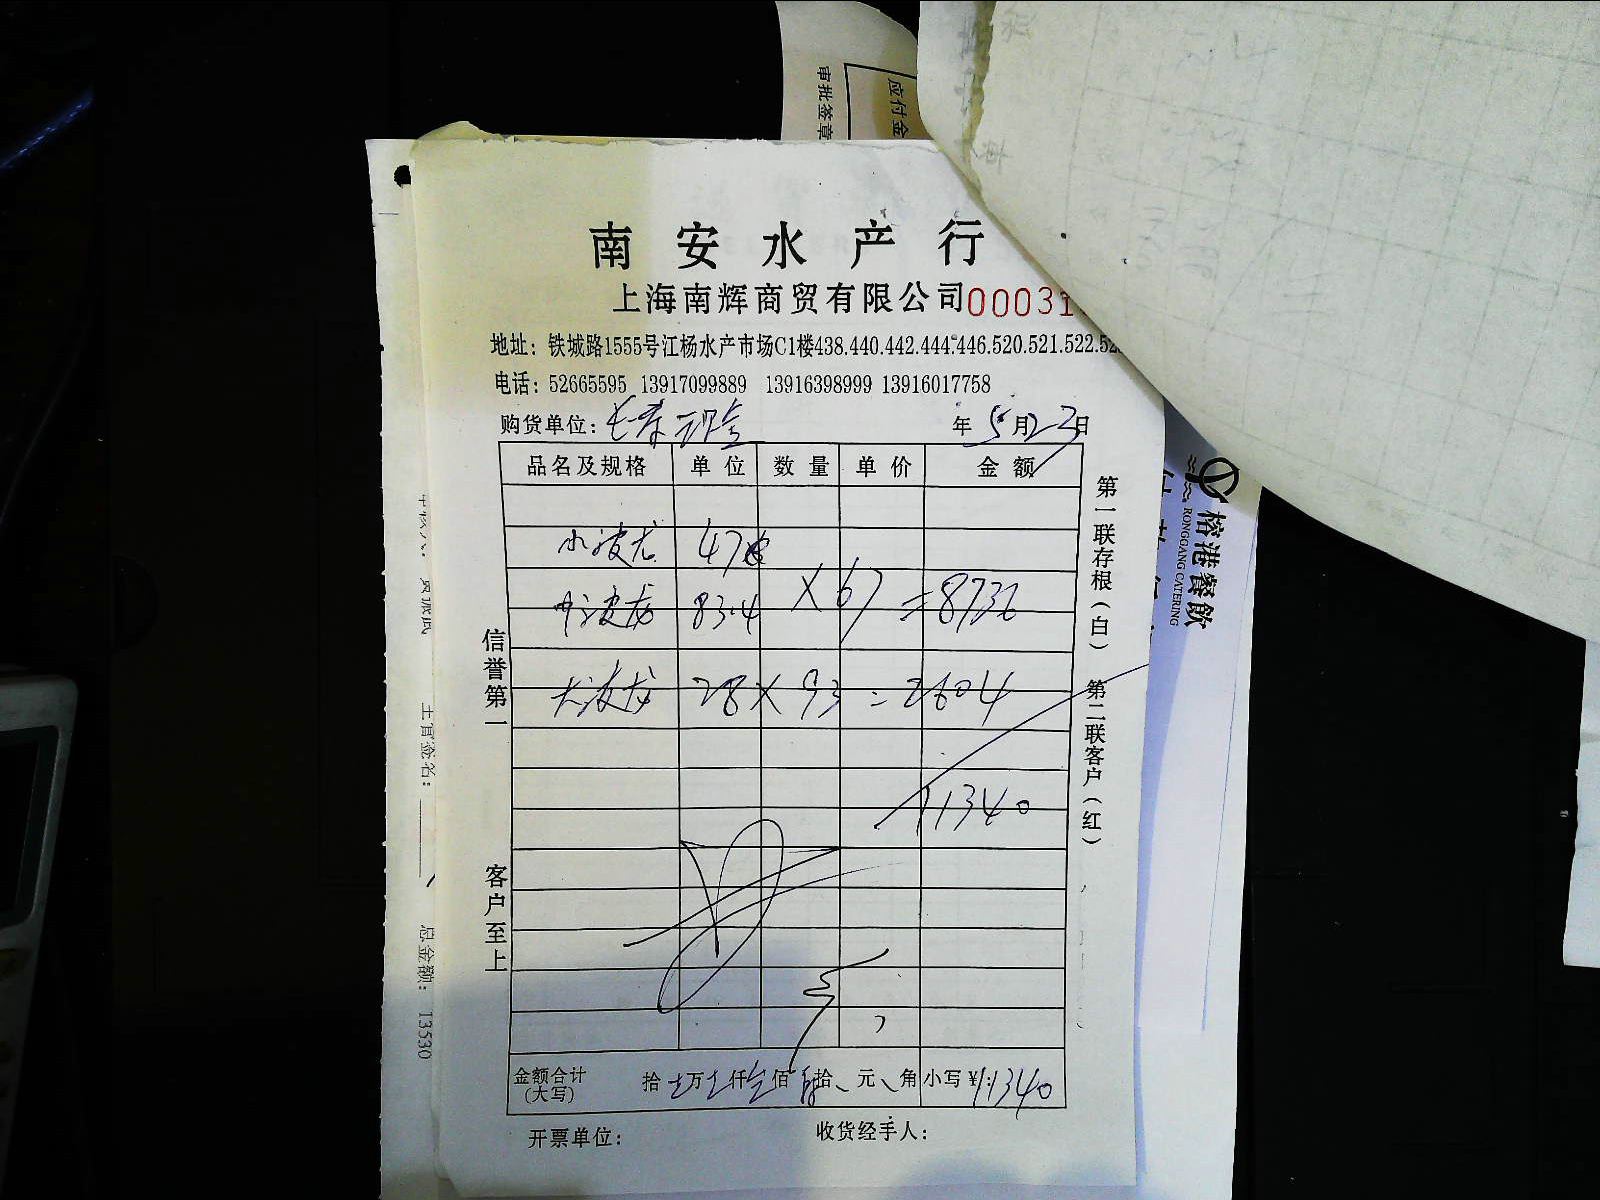 审批签章
应付金
南安水产行
上海南辉商贸有限公司 00031
地址：铁城路1555号江杨水产市场C1楼438.440.442.444.446.520.521.522.52
电话：52665595 13917099889 13916398999 13916017758
购货单位： 年5月23日
品名及规格 单位 数量 单价 金额
小波龙 47
中波龙 83.4 ×67 =8736
大波龙 28×93=2604
11340
金额合计（大写） 拾 万 仟 佰 拾 元 角 小写￥：11340
开票单位： 收货经手人：
信誉第一
客户至上
第一联存根（白） 第二联客户（红）
榕港餐飲
RONGGANG CATERING
主管签名：
总金额： 13530